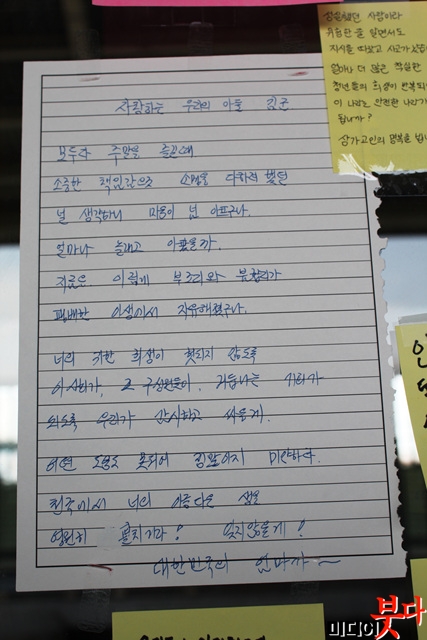 사랑하는 우리의 아들 김군
모두가 주말을 즐길때
소중한 책임감으로 소명을 다하려 했던
널 생각하니 마음이 넘 아프구나.
얼마나 놀래고 아팠을까.
지금은 이렇게 부조리와 불합리가
팽배한 이생에서 자유해졌구나.
너의 귀한 희생이 헛되지 않도록
이 사회가, 그 구성원들이, 거듭나는 기회가
되도록 우리가 감시하고 싸울게.
어떤 도움도 못되어 정말이지 미안하다.
천국에서 너의 아름다운 생을
영원히 펼치거라! 잊지않을게!
대한민국의 엄마가~
성실했던 사람이라
위험한 줄 알면서도
지시를 따랐고 사고가
얼마나 더 많은 착실한
청년들의 희생이 반복되
이 나라는 안전한 나라가
됩니까?
삼가고인의 명복을 빕니
미디어붓다